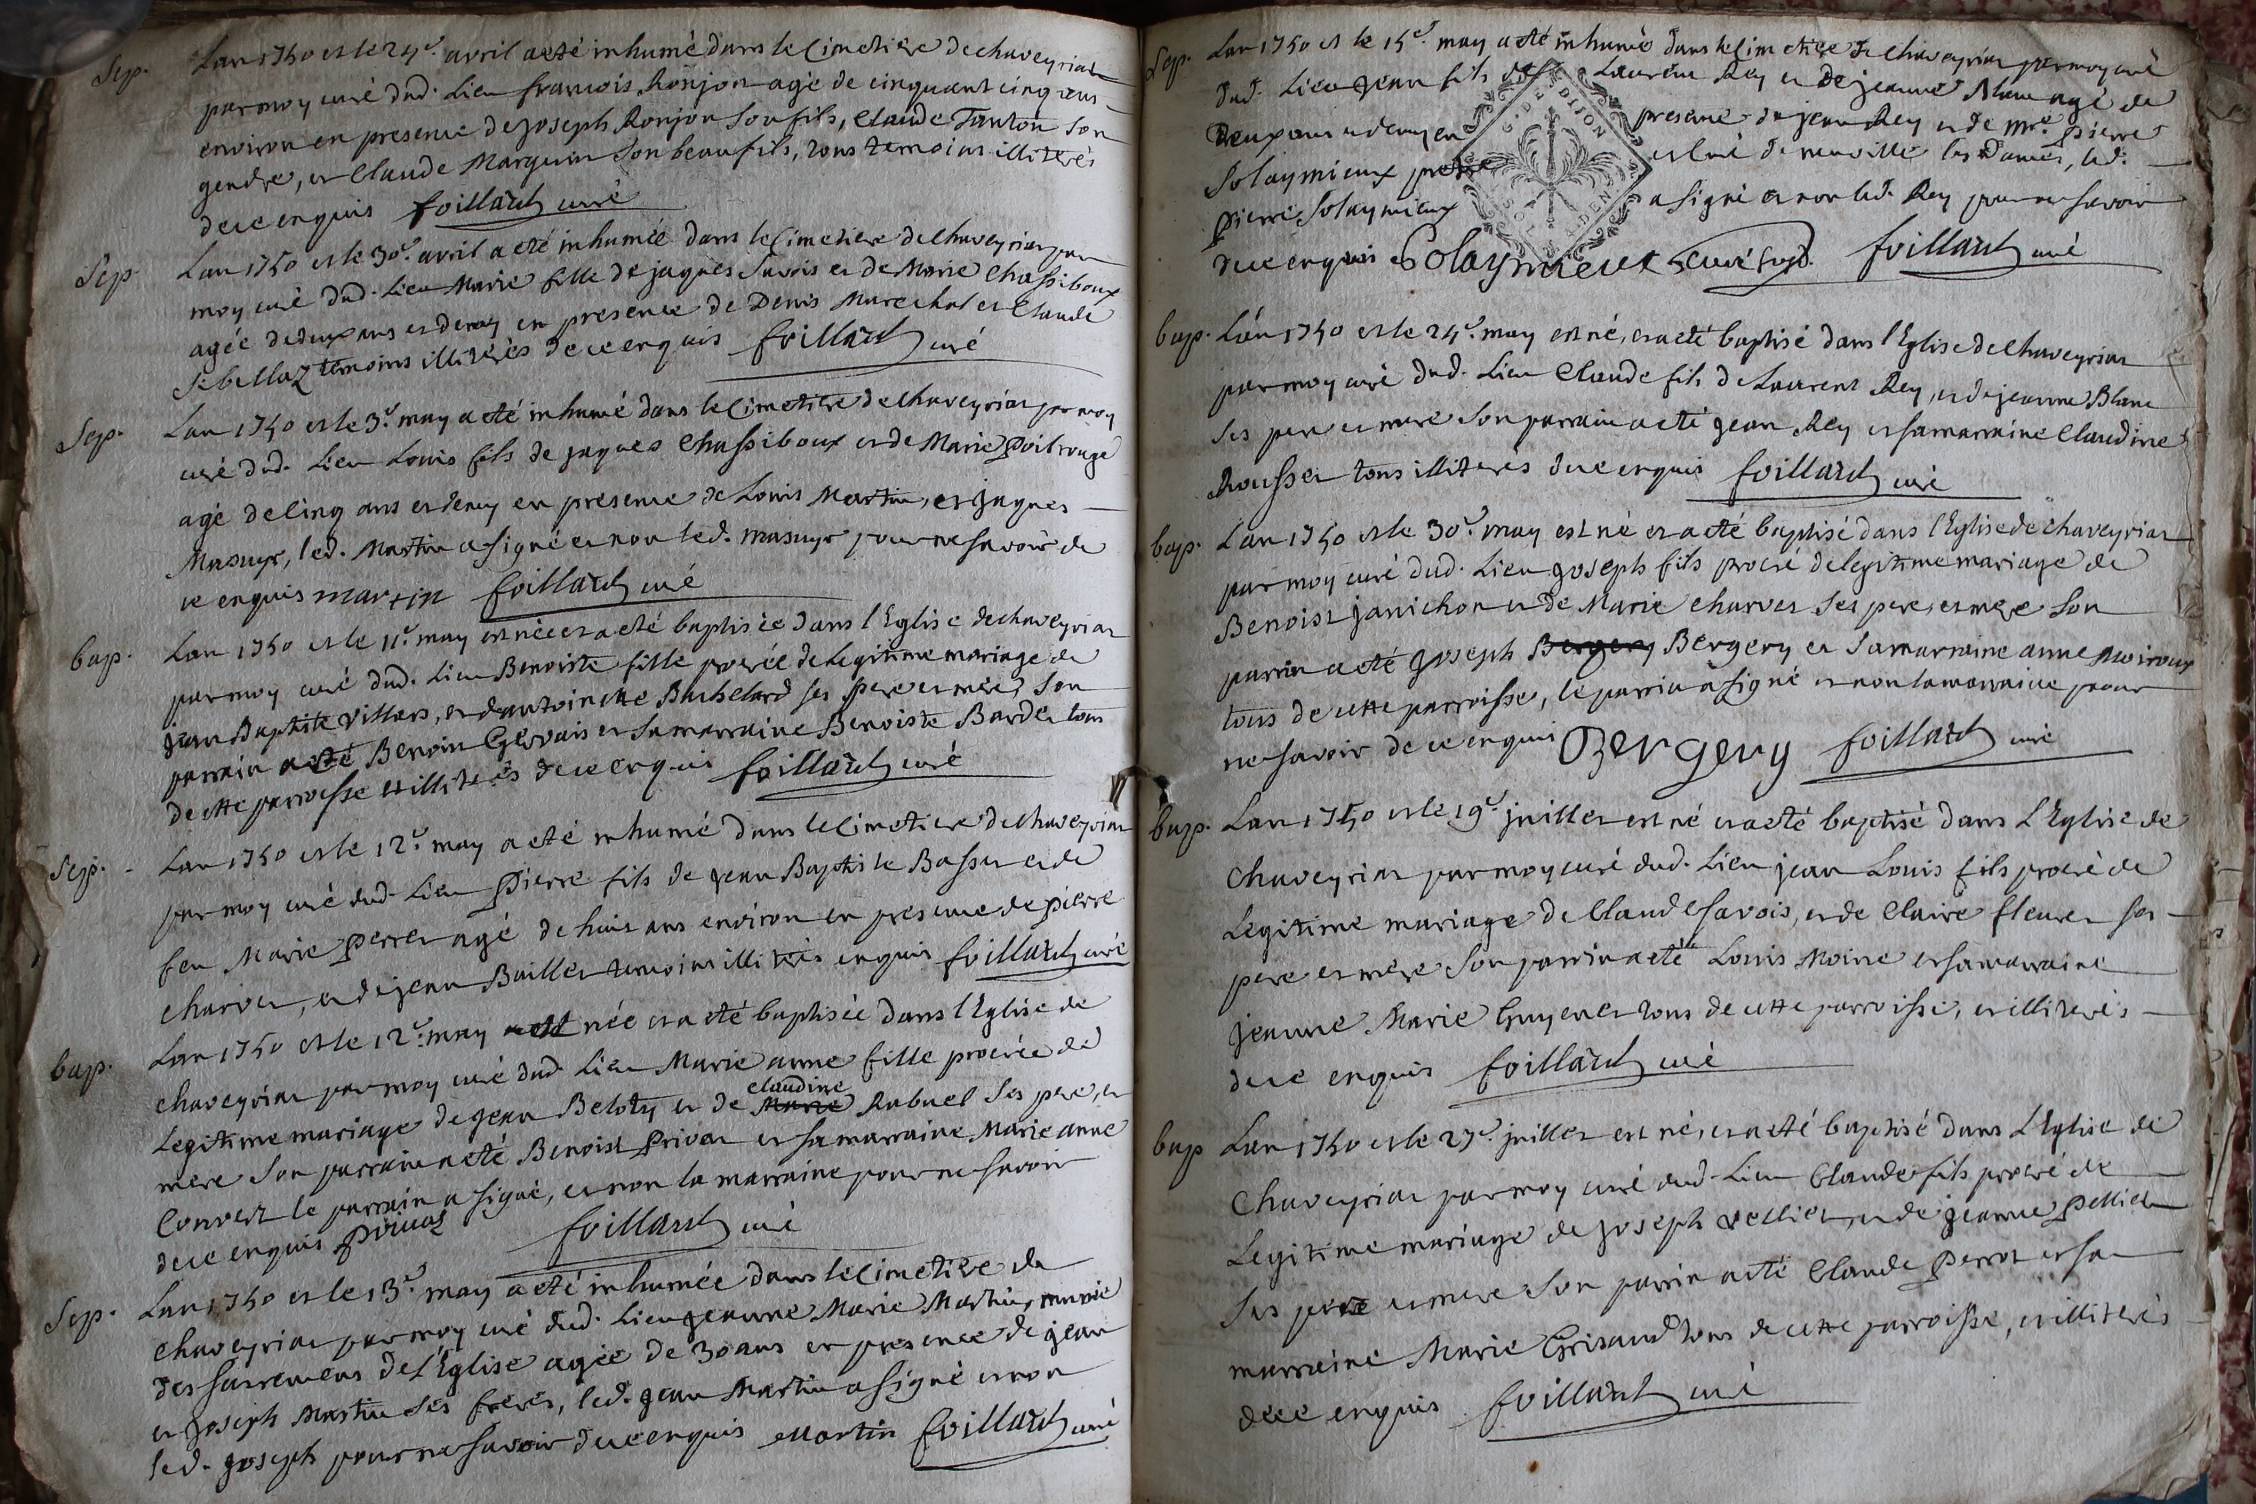 Sep. Lan 1750 et le 24e. avril a eté inhumé dans le Cimetiere de chaveyriat
par moy curé dud. Lieu francois Ronjon agé de cinquant cinq ans
environ en presence de Joseph Ronjon son fils, Claude Tanton son
gendre, et Claude Marguin son beaufils, tous temoins illiterés
de ce enquis foillard curé
Sep. Lan 1750 et le 30e. avril a eté inhumée dans le Cimetiere de Chaveyriat par
moy curé dud. Lieu Marie fille de jaques Savois et de Marie Chassiboux
agée de deux ans et demy en presence de Denis Marechal et Claude
Sebellaz temoins illiterés de ce enquis foillard curé
Sep. Lan 1750 et le 3e. may a eté inhumé dans le Cimetiere de Chaveyriat par moy
curé dud. Lieu Louis fils de jaques Chassiboux et de Marie Poilrouge
agé de Cinq ans et demy en presence de Louis Martin, et Jaques
Masuyr, led. Martin a signé et non led. masuyr pour ne savoir de
ce enquis martin foillard curé
bap. Lan 1750 et le 11e. may est née et a eté baptisée dans l'Eglise de chaveyriat
par moy curé dud. Lieu Benoiste fille procréée de Legitime mariage de
jean Baptiste Villars, et d'antoinette Bachelard ses pere et mere, Son
parrain a eté Benoin Gervais et sa marraine Benoiste Bardet tous
de cette parroisse et illiterés de ce enquis foillard curé
Sep. Lan 1750 et le 12e. may a eté inhumé dans le Cimetiere de Chaveyriat
par moy curé dud. Lieu Pierre fils de Jean Baptiste Basset et de
feu Marie Perret agé de huit ans environ en presence de pierre
Charvet, et de jean Baillet temoins illiterés enquis foillard curé
bap. Lan 1750 et le 12e. may est née et a eté baptisée dans l'Eglise de
chaveyriat par moy curé dud. Lieu Marie anne fille procréée de
claudine
Legitime mariage de jean Beloty et de Marie Rabuel Ses pere, et
mere Son parrain a eté Benoist Privat et sa marraine Marie anne
Convert le parrain a signé, et non la marraine pour ne savoir
de ce enquis privat foillard curé
Sep. Lan 1750 et le 13e. may a eté inhumée dans le Cimetiere de
chaveyriat par moy curé dud. Lieu jeanne Marie Martin, munie
des sacremens de l'Eglise agée de 30 ans en presence de jean
et joseph Martin ses freres, led. jean Martin a signé et non
led. joseph pour ne savoir de ce enquis Martin foillard curé
Sep. Lan 1750 et le 15e. may a eté inhumé dans le Cimetiere de Chaveyriat par moy curé
dud. Lieu jean fils de Laurent Rey et de jeanne Blanc agé de
deux ans et demy en presence de jean Rey et de mre. pierre
Solaymieux pretre et curé de neuville les dames, led.
pierre Solaymieux a signé et non led. Rey pour ne savoir
de ce enquis Solaymieux curé susd. foillard curé
G. DE DIJON
bap. Lan 1750 et le 24e. may est né, et a eté baptisé dans l'Eglise de Chaveyriat
par moy curé dud. Lieu Claude fils de Laurent Rey, et de jeanne Blanc
ses pere et mere son parrain a eté jean Rey et sa marraine Claudine
Rousset tous illiterés de ce enquis foillard curé
bap. Lan 1750 et le 30e. may est né et a eté baptisé dans l'Eglise de Chaveyriat
par moy curé dud. Lieu joseph fils procréé de legitime mariage de
Benoist janichon et de Marie Charvet Ses pere, et mere Son
parrin a eté joseph Bergery Bergery et Sa marraine anne Moiroux
tous de cette parroisse, le parrin a signé et non la marraine pour
ne savoir de ce enquis Bergery foillard curé
bap. Lan 1750 et le 19e. juillet est né et a eté baptisé dans L'Eglise de
Chaveyriat par moy curé dud. Lieu jean Louis fils procréé de
Legitime mariage de Claude Savois, et de Claire fleuret ses
pere et mere Son parrin a eté Louis Moine et sa marraine
jeanne Marie Guyenet tous de cette parroisse, et illiterés
de ce enquis foillard curé
bap Lan 1750 et le 27e. juillet est né, et a eté baptisé dans L'Eglise de
Chaveyriat par moy curé dud. Lieu Claude fils procréé de
Legitime mariage de joseph velliet, et de jeanne Pelliet
Ses pere et mere Son parrin a eté Claude Perrot et sa
marraine Marie Grisaud tous de cette parroisse, et illiterés
de ce enquis foillard curé